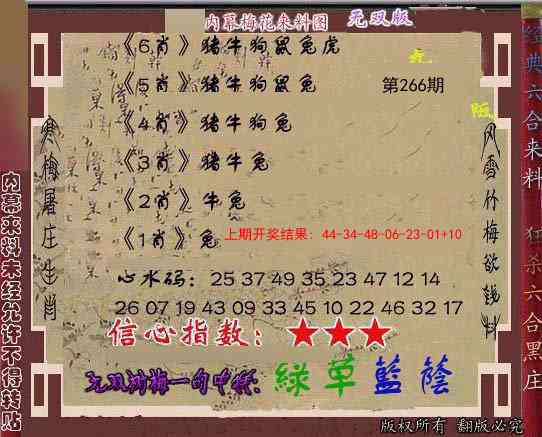 内幕梅花来料图 无双版
《6肖》猪牛狗鼠兔虎
《5肖》猪牛狗鼠兔 第266期
《4肖》猪牛狗兔
《3肖》猪牛兔
《2肖》牛兔
《1肖》兔 上期开奖结果：44-34-48-06-23-01+10
心水码：25 37 49 35 23 47 12 14
26 07 19 43 09 33 45 10 22 46 32 17
信心指数：★★★
绿草蓝荫
寒梅屠庄生肖
风雪竹梅欲钱料
内幕来料未经允许不得转贴
经典六合来料
狂杀六合黑庄
版权所有 翻版必究